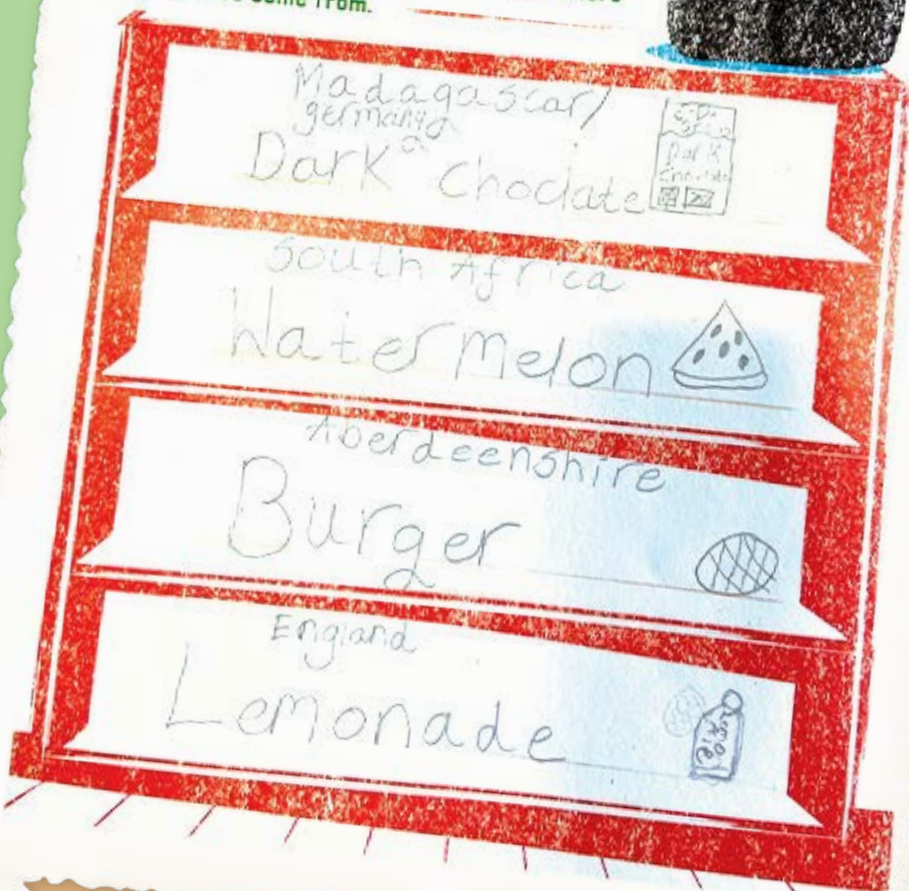 come from.
Madagascar/
germany
Dark Choclate
Dark
South Africa
Water Melon
Aberdeenshire
Burger
England
Lemonade